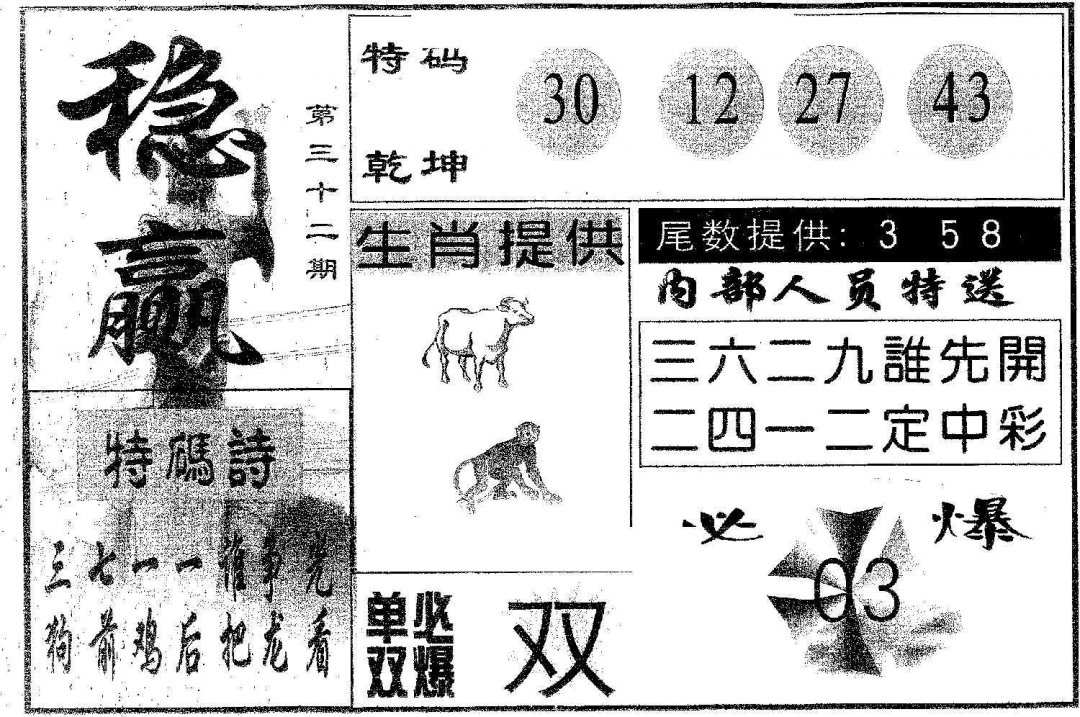 稳赢
第三十二期
特码
乾坤
30 12 27 43
生肖提供
尾数提供: 3 58
内部人员特送
三六二九誰先開
二四一二定中彩
特碼詩
三七一一谁争先
狗前鸡后把龙看
单双必爆
双
必爆
03